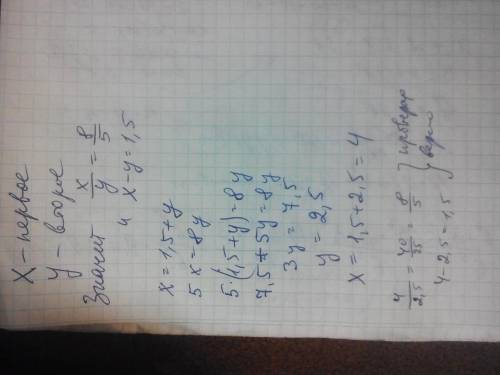 X – первое
y – второе
Значит x/y = 8/5
и x – y = 1,5
x = 1,5 + y
5x = 8y
5·(1,5 + y) = 8y
7,5 + 5y = 8y
3y = 7,5
y = 2,5
x = 1,5 + 2,5 = 4
4/2,5 = 40/25 = 8/5 } проверяю
4 – 2,5 = 1,5 } верно